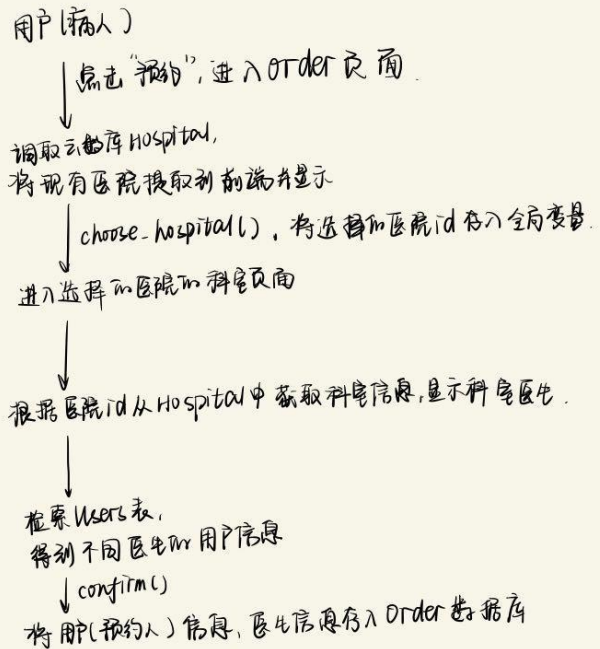 用户(病人)
点击“预约”,进入order页面.
调取云数据库Hospital,
将现有医院提取到前端并显示
choose_hospital(),将选择的医院id存入全局变量.
进入选择的医院的科室页面
根据医院id从Hospital中获取科室信息,显示科室医生.
检索Users表,
得到不同医生的用户信息
confirm()
将用户(预约人)信息,医生信息存入Order数据库